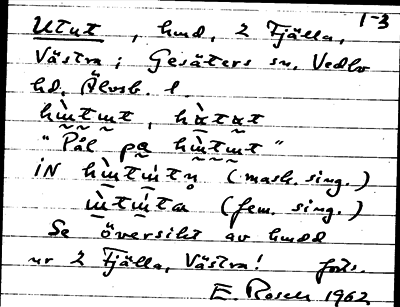 1-3
Utut, hmd, 2 Fjälla,
Västra; Gesäters sn. Vedbo
hd. Älvsb. l.
hm̀tmt, hὰtαt
"Pål pa hm̀tmt"
iN hm̀tmtn (mask. sing.)
m̀tmta (fem. sing.)
Se översikt av hmdd
ur 2 Fjälla, Västra! forts.
E. Rosell 1962